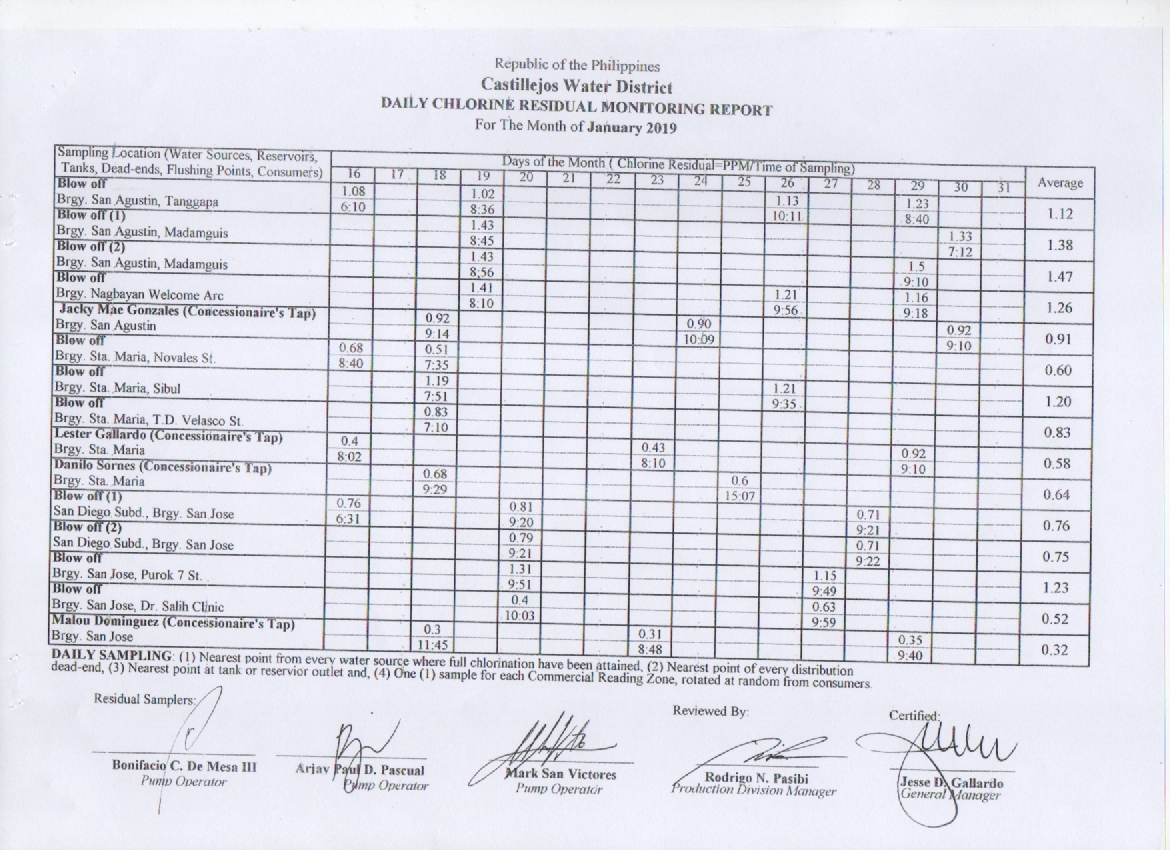 Republic of the Philippines
Castillejos Water District
DAILY CHLORINE RESIDUAL MONITORING REPORT
For The Month of January 2019
Sampling Location (Water Sources, Reservoirs, Tanks, Dead-ends, Flushing Points, Consumers)
Days of the Month ( Chlorine Residual=PPM/Time of Sampling)
Average
16 17 18 19 20 21 22 23 24 25 26 27 28 29 30 31
Blow off 1.08 1.02 1.13 1.23
Brgy. San Agustin, Tanggapa 6:10 8:36 10:11 8:40 1.12
Blow off (1) 1.43 1.33
Brgy. San Agustin, Madamguis 8:45 7:12 1.38
Blow off (2) 1.43 1.5
Brgy. San Agustin, Madamguis 8:56 9:10 1.47
Blow off 1.41 1.21 1.16
Brgy. Nagbayan Welcome Arc 8:10 9:56 9:18 1.26
Jacky Mae Gonzales (Concessionaire's Tap) 0.92 0.90 0.92
Brgy. San Agustin 9:14 10:09 9:10 0.91
Blow off 0.68 0.51
Brgy. Sta. Maria, Novales St. 8:40 7:35 0.60
Blow off 1.19 1.21
Brgy. Sta. Maria, Sibul 7:51 9:35 1.20
Blow off 0.83
Brgy. Sta. Maria, T.D. Velasco St. 7:10 0.83
Lester Gallardo (Concessionaire's Tap) 0.4 0.43 0.92
Brgy. Sta. Maria 8:02 8:10 9:10 0.58
Danilo Sornes (Concessionaire's Tap) 0.68 0.6
Brgy. Sta. Maria 9:29 15:07 0.64
Blow off (1) 0.76 0.81 0.71
San Diego Subd., Brgy. San Jose 6:31 9:20 9:21 0.76
Blow off (2) 0.79 0.71
San Diego Subd., Brgy. San Jose 9:21 9:22 0.75
Blow off 1.31 1.15
Brgy. San Jose, Purok 7 St. 9:51 9:49 1.23
Blow off 0.4 0.63
Brgy. San Jose, Dr. Salih Clinic 10:03 9:59 0.52
Malou Dominguez (Concessionaire's Tap) 0.3 0.31 0.35
Brgy. San Jose 11:45 8:48 9:40 0.32
DAILY SAMPLING: (1) Nearest point from every water source where full chlorination have been attained, (2) Nearest point of every distribution
dead-end, (3) Nearest point at tank or reservior outlet and, (4) One (1) sample for each Commercial Reading Zone, rotated at random from consumers.
Residual Samplers: Reviewed By: Certified:
Bonifacio C. De Mesa III Arjay Paul D. Pascual Mark San Victores Rodrigo N. Pasibi Jesse D. Gallardo
Pump Operator Pump Operator Pump Operator Production Division Manager General Manager